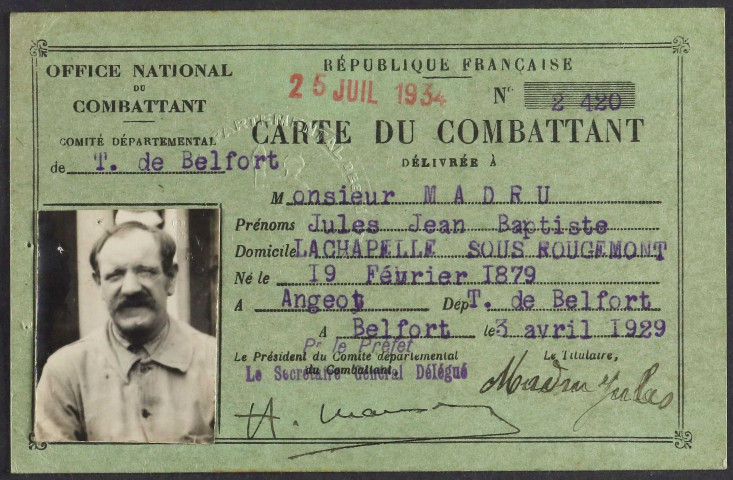 OFFICE NATIONAL
DU
COMBATTANT
COMITÉ DÉPARTEMENTAL
de T. de Belfort
RÉPUBLIQUE FRANÇAISE
25 JUIL 1934 N° 2 420
CARTE DU COMBATTANT
DÉLIVRÉE À
Monsieur MADRU
Prénoms Jules Jean Baptiste
Domicile LACHAPELLE SOUS ROUGEMONT
Né le 19 Février 1879
A Angeot Dep T. de Belfort
A Belfort le 3 avril 1929
Pr le Préfet
Le Président du Comité départemental Le Titulaire,
du Combattant,
Le Secrétaire Général Délégué
Madru Jules